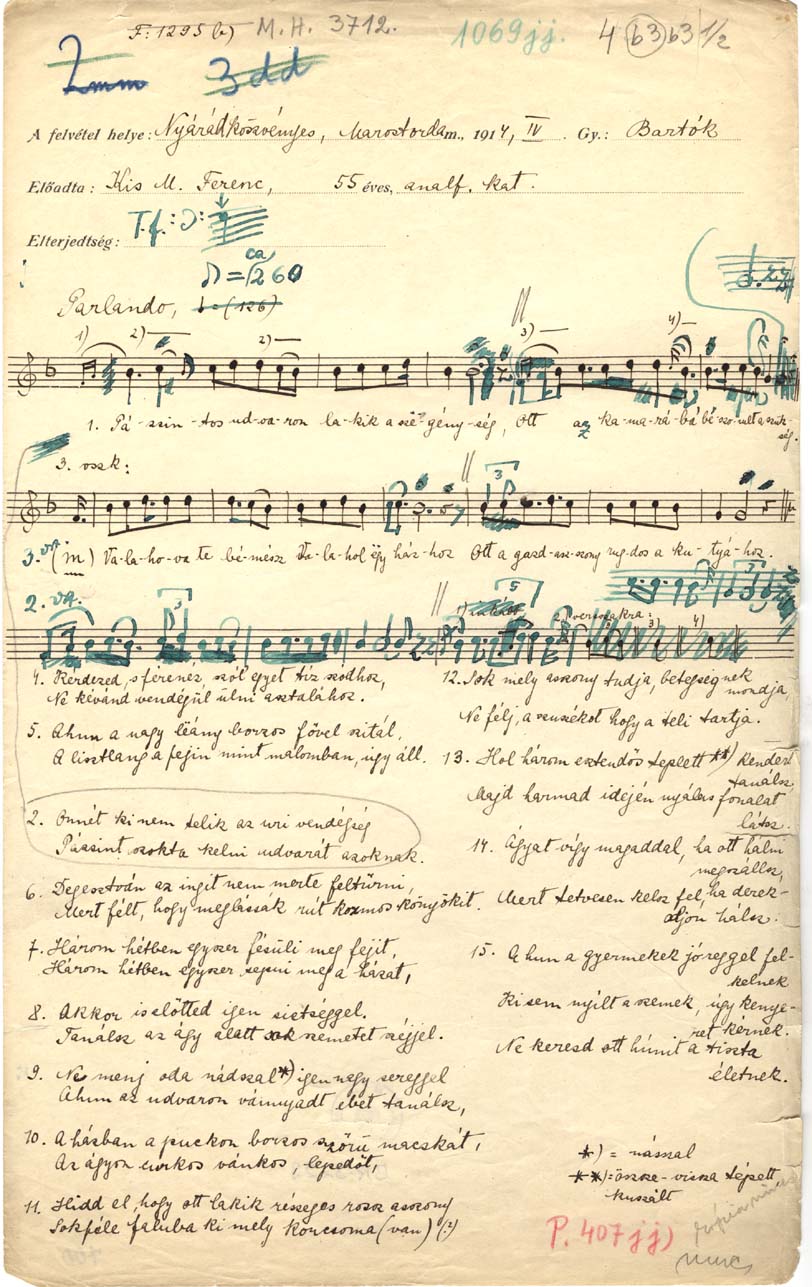 F: 1295 b) M.H. 3712. 1069 jj. 4 63 63 1/2
3dd
A felvétel helye: Nyárádköszvényes, Marostorda m., 1914, IV. Gy.: Bartók
Előadta: Kis M. Ferenc, 55 éves, analf. kat.
Elterjedtség: T.f.:
ca
♪ = 260
Parlando, (126)
1) 2) 2) 3) 4)
1. Pá-zsin-tos ud-va-ron la-kik a szë-gény-ség, Ott az ka-ma-rá-bá bé-szo-rult a szük-
ség.
3. vszk:
3
3. vsz. (m) Va-la-ho-va te bé-mész Va-la-hol ëgy ház-hoz Ott a gazd-asz-szony rug-dos a ku-tyá-hoz.
2. vsz. 3 5 versszakra: 3) 4) 3
4. Kérdezed, s férenéz, szól egyet tíz szodhoz,
Ne kívánd vendégül ülni asztalához.
5. Ahun a nagy leány borzos fővel szitál,
A lisztlang a fejin mint malomban, úgy áll.
2. Onnét ki nem telik az uri vendégség
Páăsint szokta kelni udvarát azoknak.
6. Degesztván az ingit nem merte feltűrni,
Mert félt, hogy meglássák rút kozmos könyökit.
7. Három hétben egyszer fésüli meg fejit,
Három hétben egyszer sepri meg a házat,
8. Akkor is előtted igen sietséggel.
Tanálsz az ágy alatt sok szemetet széjjel.
9. Ne menj oda nádszal*) igen nagy sereggel
Ahun az udvaron vánnyadt ebet tanálsz,
10. A házban a puckon borzos szőrü macskát,
Az ágyon czirkos vánkos, lepedőt,
11. Hidd el, hogy ott lakik részeges rossz asszony
Sokféle faluba ki mely koncsoma (van) (?)
12. Sok mely asszony tudja, betegségnek
mondja,
Ne félj, a szuszékot hogy a teli tartja.
13. Hol három esztendős teplett **) kendert
tanálsz,
Majd harmad idején nyálas fonalat
látsz.
14. Ágyat vígy magaddal, ha ott hálni
megszállsz,
Mert tetvesen kelsz fel, ha derek-
aljon hálsz.
15. A hun a gyermekek jó reggel fel-
kelnek
Ki sem nyílt a szemek, úgy kenye-
ret kérnek.
Ne keresd ott húmit a tiszta
életnek.
*) = násszal
**) = össze-vissza tépett
kuszált
P. 407 jj)
kópia nincs
nincs